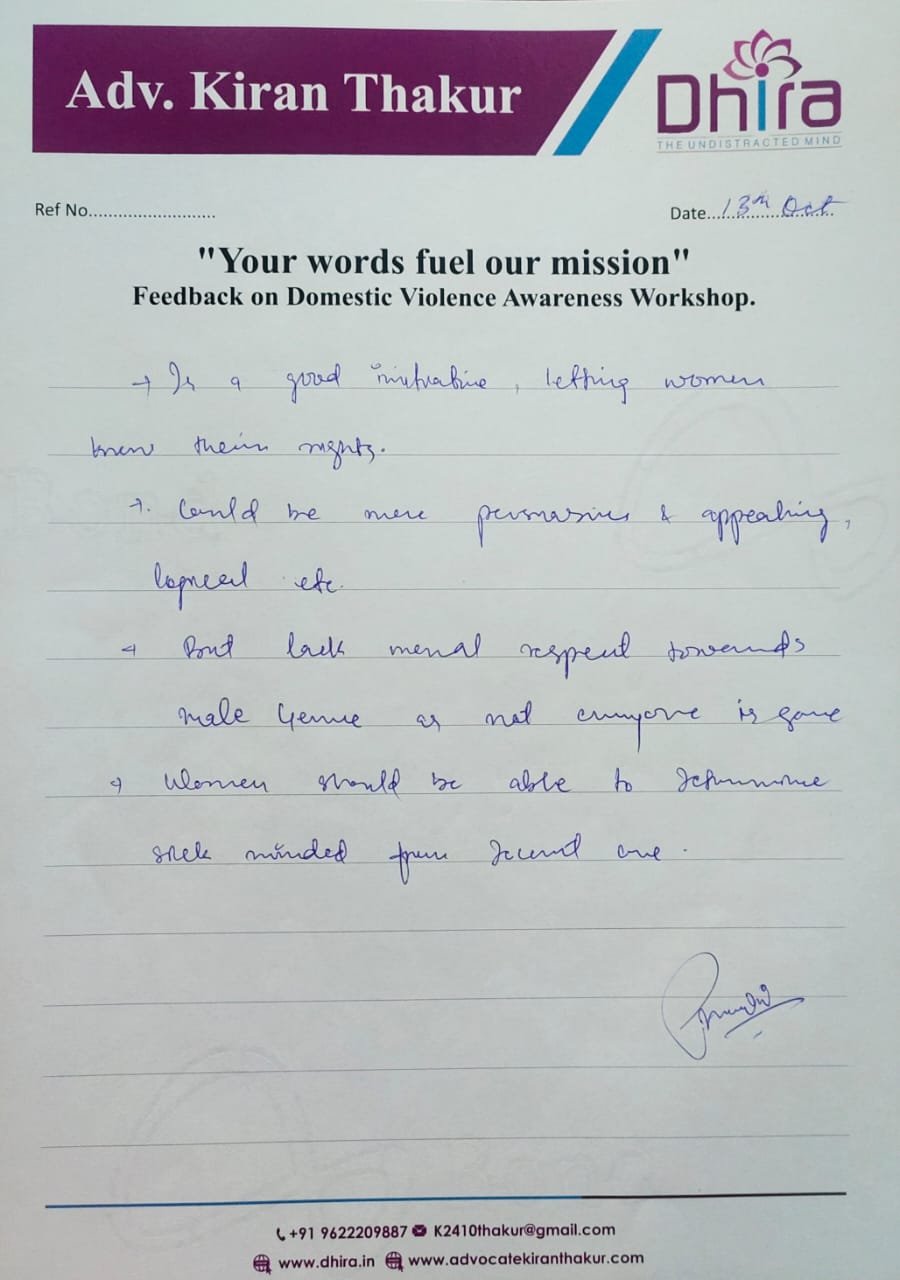 Adv. Kiran Thakur
Dhira
THE UNDISTRACTED MIND
Ref No..........................
Date...13th Oct
"Your words fuel our mission"
Feedback on Domestic Violence Awareness Workshop.
→ Is a good initiative, letting women
know their rights.
→. Could be more persuasive & appealing,
logical etc.
→ But lack respect towards
male as not everyone is
→ Women should be able to determine
sick minded from decent one.
+91 9622209887 K2410thakur@gmail.com
www.dhira.in www.advocatekiranthakur.com